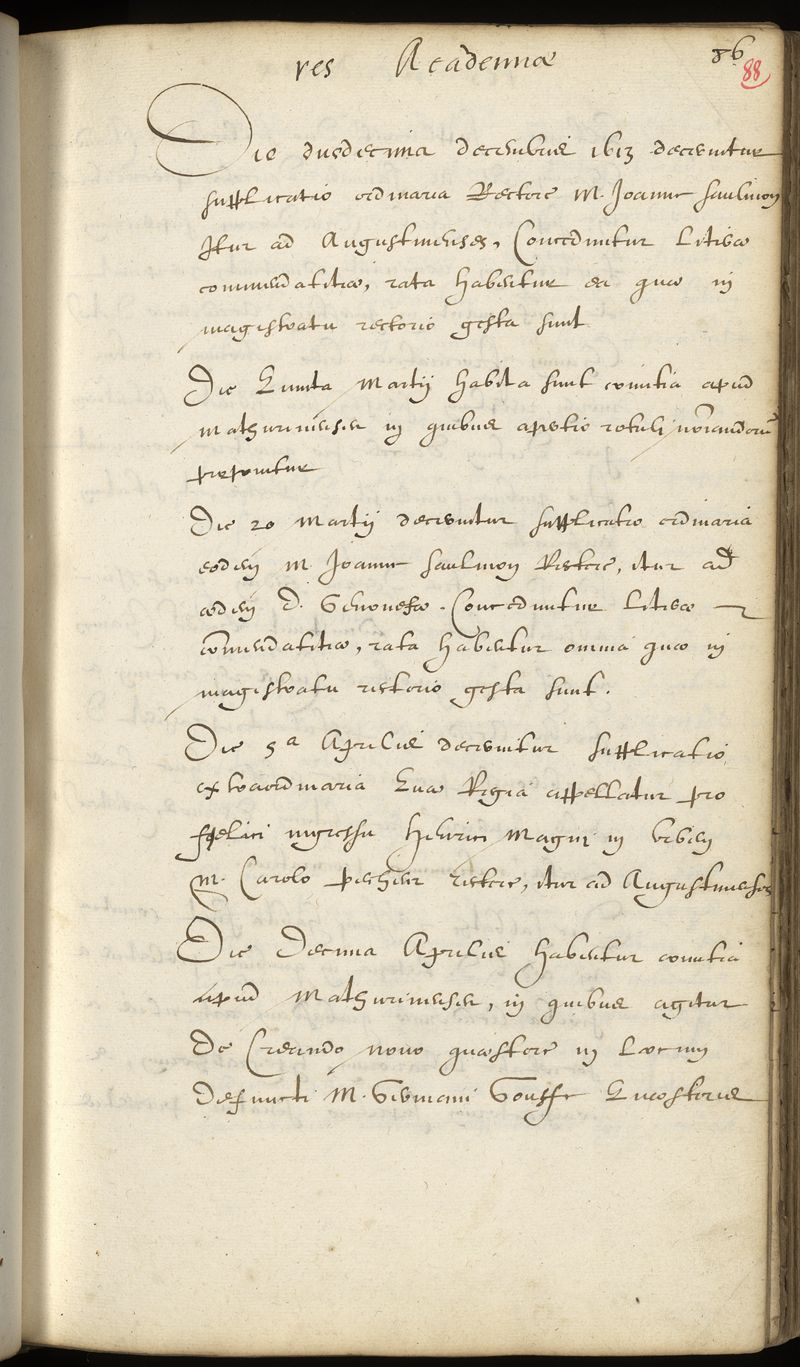 res Academiæ 86
88
Die duodecima decembris 1613 decernitur
supplicatio ordinaria Rectore M. Joanne Saulmon
Itur ad Augustinenses, Conceduntur literæ
commendatitiæ, rata habentur ea quæ in
magistratu rectorio gesta sunt
Die Quinta Martij habita sunt comitia apud
Mathurinenses in quibus apertio rotuli nōīandorū
proponitur
Die 20 Martij decernitur supplicatio ordinaria
eodem M. Joanne Saulmon Rectore, itur ad
ædem D. Genovefæ. Conceduntur literæ
cōmendatitiæ, rata habentur omnia quæ in
magistratu rectorio gesta sunt.
Die 5a Aprilis decernitur supplicatio
extraordinaria Quæ Regia appellatur pro
felici ingressu Henrici Magni in Urbem
M. Carolo Pescheur rectore, itur ad Augustinenses
Die Decima Aprilis habentur comitia
apud Mathurinenses, in quibus agitur
De Creando novo quæstore in Locum
Defuncti M. Germani Gousse Quæstoris